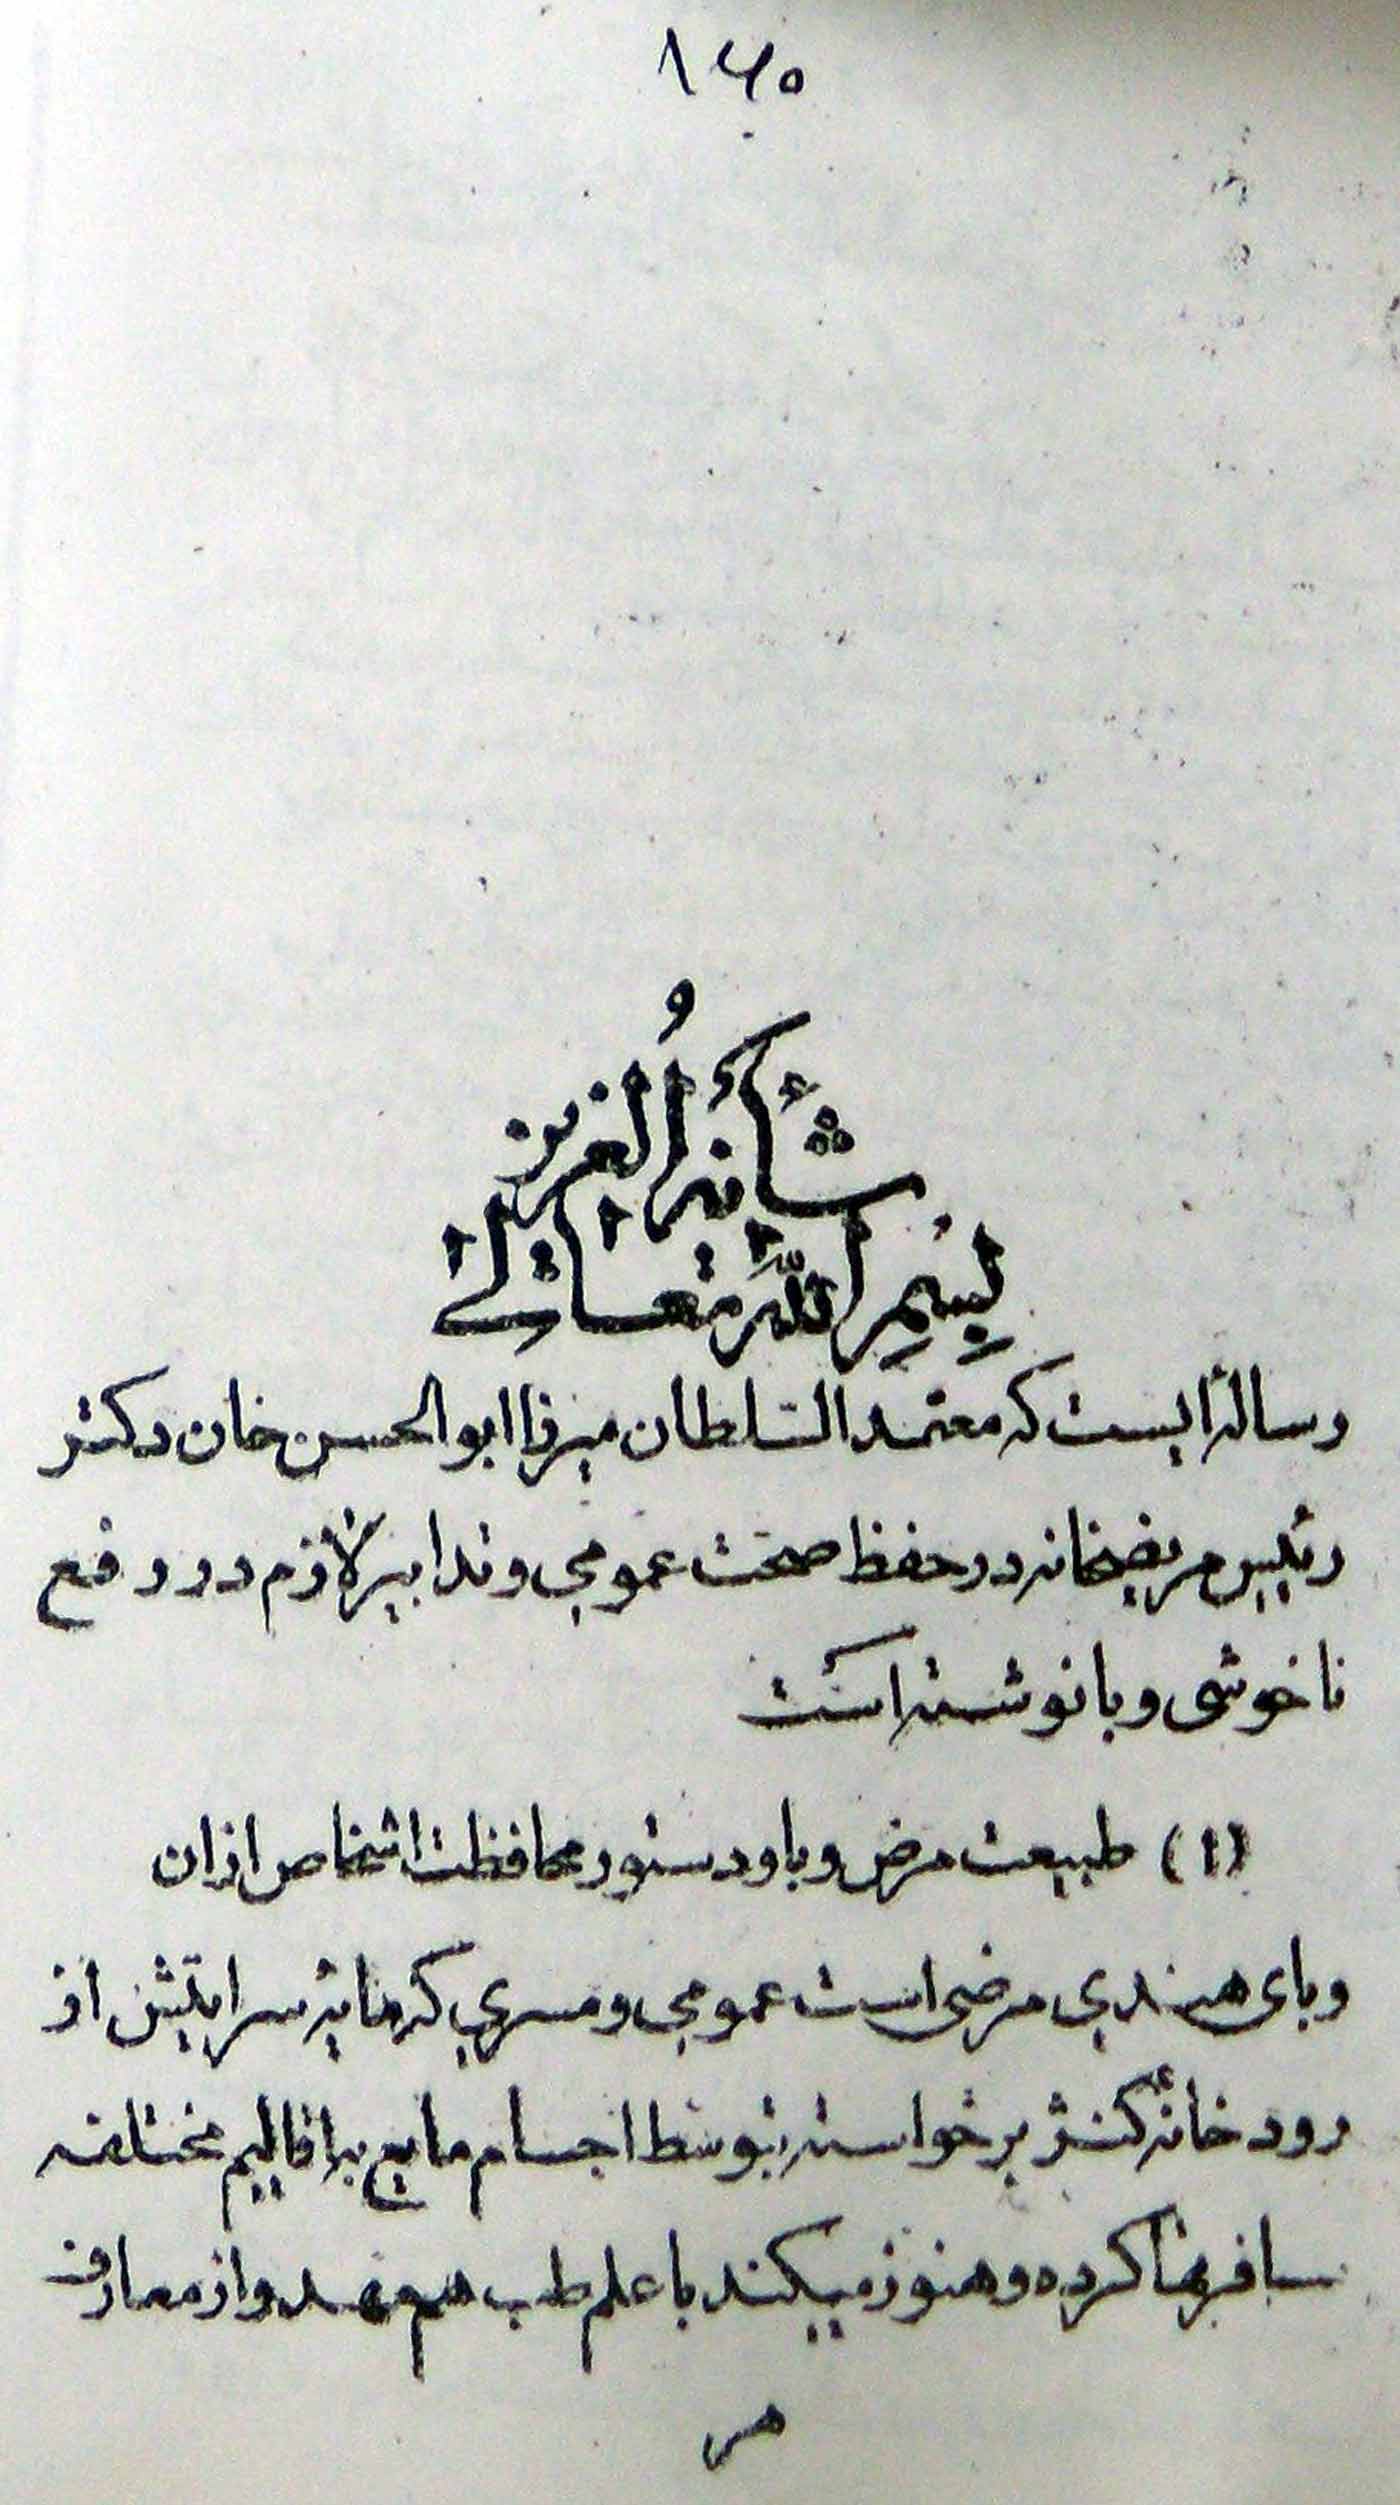 ۱۶۰
بسم الله تعالى
شأنه العزیز
رسالهٔ ایست که معتمد السلطان میرزا ابوالحسن خان دکتر
رئیس مریضخانه در حفظ صحت عمومی و تدابیر لازم در رفع
ناخوشی وبا نوشته است
(۱) طبیعت مرض وبا و دستور محافظت اشخاص از ان
وبای هندی مرضی است عمومی و مسری که مایه سرایتش از
رودخانهٔ کنژ برخواسته بتوسط اجسام مایع به اقالیم مختلفه
سافرتها کرده و هنوز میکند با علم طب هم عهد و از معارف
هر